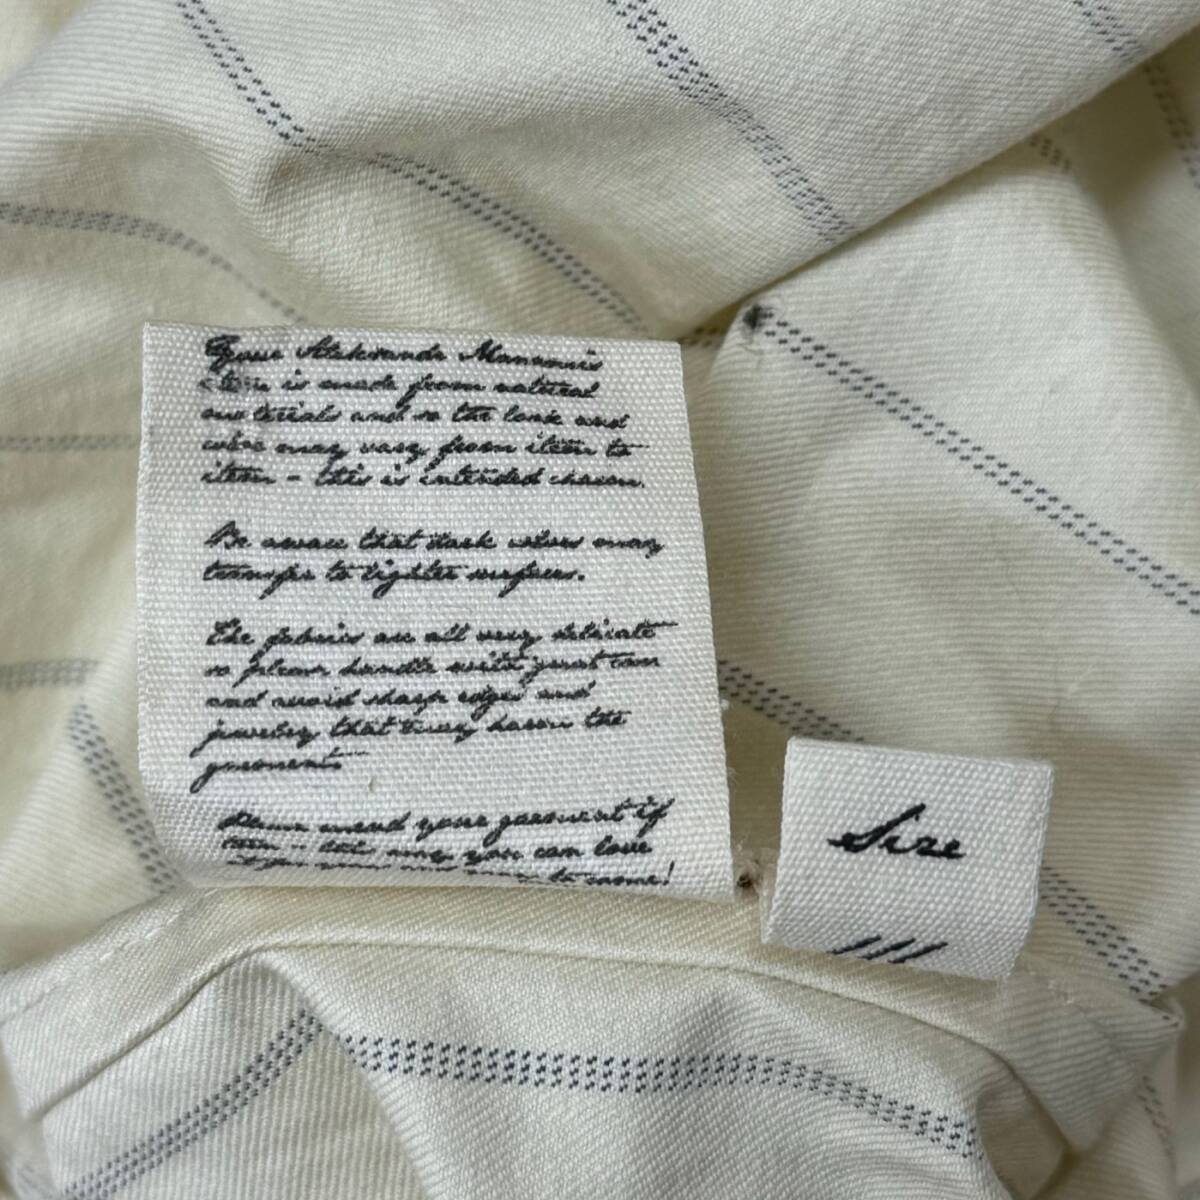 Your Aleksandr Manamis
item is made from natural
materials and so the look and
may vary from item to
item - this is intended
Be aware that dark colors may
transfer to lighter surfaces.
The fabrics are all very delicate
so please handle with great care
and avoid sharp edges and
jewelry that may harm the
garments
Please mend your garment if
torn - this way you can love
it for years and to come!
Size
///